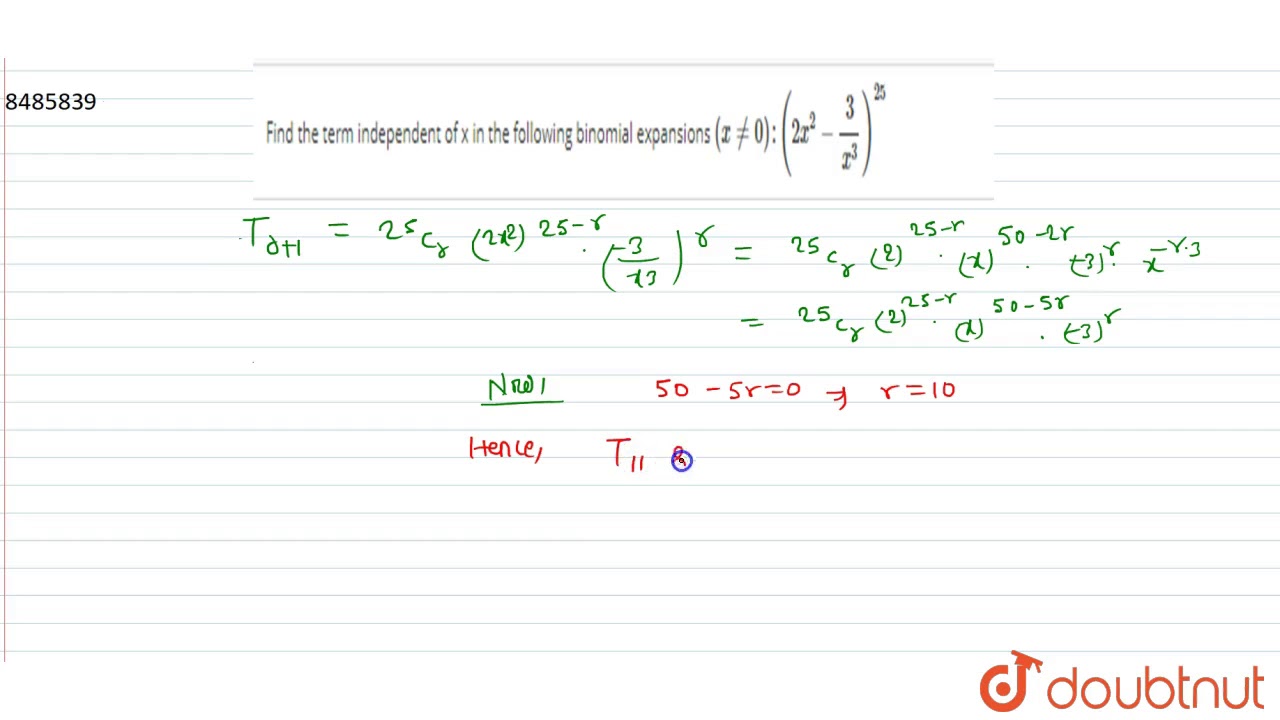 8485839
Find the term independent of x in the following binomial expansions (x ≠ 0): (2x² − 3/x³)²⁵
T_{r+1} = ²⁵C_r (2x²)^{25−r} · (−3/x³)^r = ²⁵C_r (2)^{25−r} · (x)^{50−2r} · (−3)^r · x^{−r·3}
= ²⁵C_r (2)^{25−r} · (x)^{50−5r} · (−3)^r
50 − 5r = 0 ⇒ r = 10
Hence, T₁₁
doubtnut